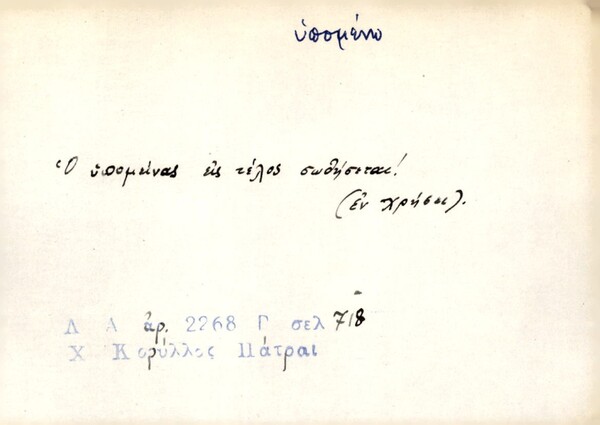 ὑπομένω
Ὁ ὑπομείνας εἰς τέλος σωθήσεται!
(ἐν χρήσει).
Λ Α ἀρ. 2268 Γ σελ 718
Χ Κορύλλος Πάτραι